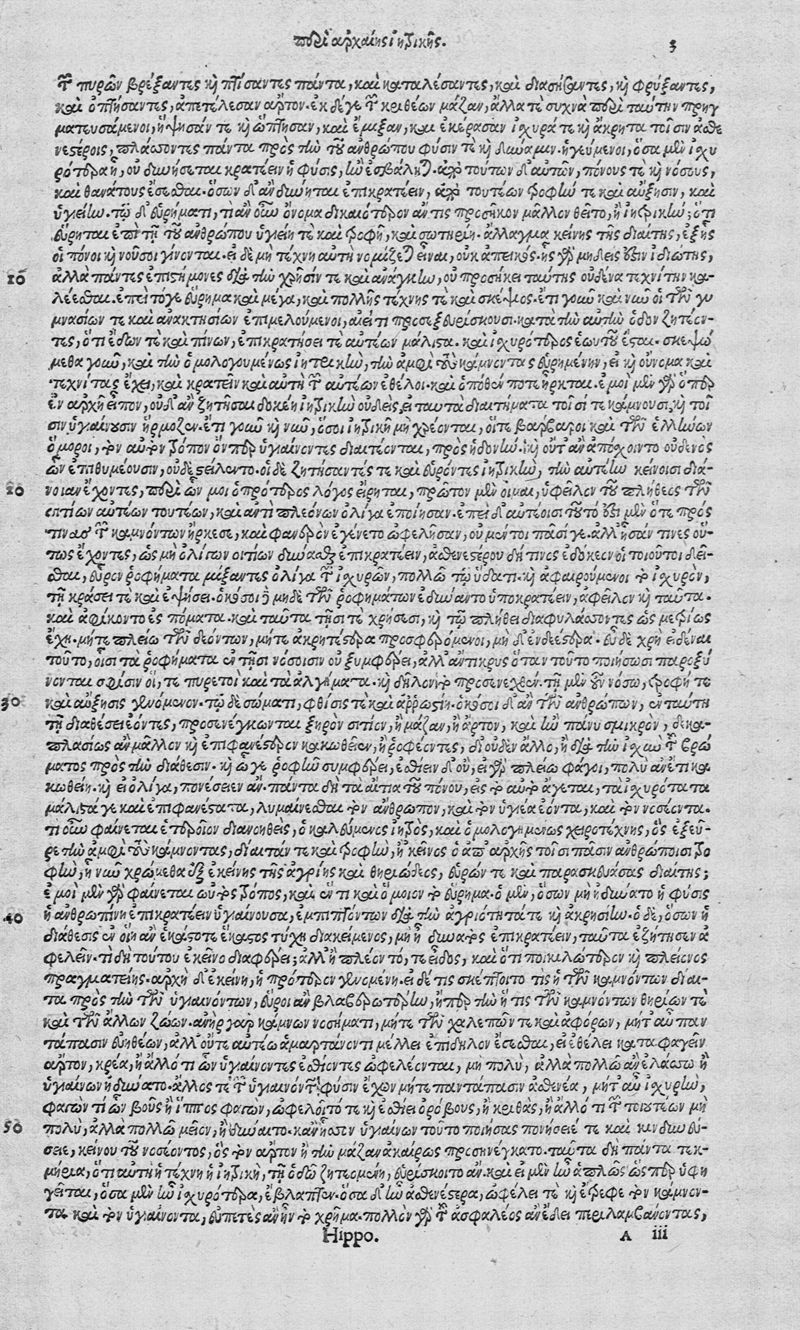 περὶ ἀρχαίης ἰητρικῆς. 3
τῶν πυρῶν βρέξαντες καὶ πτίσαντες πάντα, καὶ καταλέσαντες, καὶ διασήσαντες, καὶ φρύξαντες,
καὶ ὀπτήσαντες, ἀπετέλεσαν ἄρτον. ἐκ δέ γε τῶν κριθέων μάζαν, ἄλλα τε συχνὰ περὶ ταύτην πρηγ
ματευσάμενοι, ἥψησάν τε καὶ ὤπτησαν, καὶ ἔμιξαν, καὶ ἐκέρασαν ἰσχυρά τε καὶ ἄκρητα τοῖσιν ἀσθε
νεστέροις, πλάσσοντες πάντα πρὸς τὴν τοῦ ἀνθρώπου φύσιν τε καὶ δύναμιν. ἡγεύμενοι, ὅσα μὲν ἰσχυ
ρότερα ᾖ, οὐ δυνήσεται κρατέειν ἡ φύσις, ἢν ἐσβάληται. ἀπὸ τούτων δ' αὐτῶν, πόνους τε καὶ νόσους,
καὶ θανάτους ἔσεσθαι. ὅσων δ' ἂν δύνηται ἐπικρατέειν, ἀπὸ τουτέων τροφήν τε καὶ αὔξησιν, καὶ
ὑγιείην. τῷ δ' εὑρήματι, τί ἂν οὕτω ὄνομα δικαιότερον ἄν τις προσῆκον μᾶλλον θεῖτο, ἢ ἰητρικήν, ὅτι
εὕρηται ἐπὶ τῇ τοῦ ἀνθρώπου ὑγιείῃ τε καὶ τροφῇ, καὶ σωτηρίῃ. ἄλλαγμα κείνης τῆς διαίτης, ἐξ ἧς
οἱ πόνοι καὶ νοῦσοι γίνονται. εἰ δὲ μὴ τέχνη αὐτὴ νομίζεται εἶναι, οὐκ ἀπεικός. ἧς γὰρ μηδείς ἐστιν ἰδιώτης,
10 ἀλλὰ πάντες ἐπιστήμονες διὰ τὴν χρῆσίν τε καὶ ἀνάγκην, οὐ προσήκει ταύτης οὐδένα τεχνίτην κα-
λέεσθαι. ἐπεὶ τό γε εὕρημα καὶ μέγα, καὶ πολλῆς τέχνης τε καὶ σκέψιος. ἔτι γοῦν καὶ νῦν οἱ τῶν γυ
μνασίων τε καὶ ἀνακτησίων ἐπιμελούμενοι, αἰεί τι προσεξευρίσκουσι. κατὰ τὴν αὐτὴν ὁδὸν ζητέον-
τες, ὅτι ἔδων τε καὶ πίνων, ἐπικρατήσει τε αὐτέων μάλιστα. καὶ ἰσχυρότερος ἑωυτοῦ ἔσται. σκεψώ
μεθα γοῦν, καὶ τὴν ὁμολογουμένως ἰητρικὴν, τὴν ἀμφὶ τοὺς κάμνοντας εὑρημένην, εἰ καὶ οὔνομα καὶ
τεχνίτας ἔχει, καὶ κρατέειν καὶ αὐτὴ τῶν αὐτέων ἐθέλοι. καὶ ὁπόθεν ποτε ἦρκται. ἐμοὶ μὲν γὰρ ὅπερ
ἐν ἀρχῇ εἶπον, οὐδ' ἂν ζητῆσαι δοκέῃ ἰητρικὴν οὐδεὶς, εἰ ταῦτα διαιτήματα τοῖσί τε κάμνουσι, καὶ τοῖ
σιν ὑγιαίνουσιν ἥρμοζεν. ἔτι γοῦν καὶ νῦν, ὅσοι ἰητρικῇ μὴ χρέονται, οἵ τε βάρβαροι καὶ τῶν ἑλλήνων
ὅμοροι, τὸν αὐτὸν τρόπον ὅνπερ ὑγιαίνοντες διαιτέονται, πρὸς ἡδονήν. καὶ οὔτ' ἂν ἀπόσχοιντο οὐδενὸς
ὧν ἐπιθυμέουσιν, οὐδὲ στείλαιντο. οἱ δὲ ζητήσαντές τε καὶ εὑρόντες ἰητρικὴν, τὴν αὐτέην κείνοισι διά-
20 νοιαν ἔχοντες, περὶ ὧν μοι ὁ πρότερος λόγος εἴρηται, πρῶτον μὲν οἶμαι, ὑφεῖλον τοῦ πλήθεος τῶν
σιτίων αὐτέων τουτέων, καὶ ἀντὶ πλεόνων ὀλίγα ἐποίησαν. ἐπεὶ δ' αὐτέοισι τοῦτο ἔστι μὲν ὅτε πρός
τινας τῶν καμνόντων ἤρκεσε, καὶ φανερὸν ἐγένετο ὠφελῆσαν, οὐ μέντοι πᾶσί γε. ἀλλ' ἦσάν τινες οὕ-
τως ἔχοντες, ὡς μὴ ὀλίγων σιτίων δύνασθαι ἐπικρατέειν, ἀσθενεστέρου δή τινος ἐδόκεον οἱ τοιοῦτοι δεῖ-
σθαι, εὗρον ῥοφήματα μίξαντες ὀλίγα τῶν ἰσχυρῶν, πολλῷ τῷ ὕδατι. καὶ ἀφαιρούμενοι τὸ ἰσχυρὸν,
τῇ κρήσει τε καὶ ἑψήσει. ὁκόσοι δὲ μηδὲ τῶν ῥοφημάτων ἐδύναντο ὑποκρατέειν, ἀφεῖλον καὶ ταῦτα.
καὶ ἀφίκοντο ἐς πόματα. καὶ ταῦτα τῇσί τε χρήσεσι, καὶ τῷ πλήθει διαφυλάσσοντες ὡς μετρίως
ἔχῃ. μήτε πλείω τῶν δεόντων, μήτε ἀκρητέστερα προσφερόμενοι, μὴ δ' ἐνδεέστερα. εὖ δὲ χρὴ εἰδέναι
τοῦτο, οἷσι τὰ ῥοφήματα ἐν τῇσι νόσοισιν οὐ ξυμφέρει, ἀλλ' ἄντικρυς ὅταν τοῦτο ποιήσωσι παροξύ
νονται σφίσιν οἵ, τε πυρετοὶ καὶ τὰ ἀλγήματα. καὶ δῆλον τὸ προσενεχθὲν. τῇ μὲν ἐν νόσῳ, τροφή τε
30 καὶ αὔξησις γινόμενον. τῷ δὲ σώματι, φθίσις τε καὶ ἀῤῥωστίη. ὁκόσοι δ' ἂν τῶν ἀνθρώπων, ἐν ταύτῃ
τῇ διαθέσει ἐόντες, προσενέγκωνται ξηρὸν σιτίον, ἢ μάζαν, ἢ ἄρτον, καὶ ἢν πάνυ σμικρὸν, δεκα-
πλασίως ἂν μᾶλλον καὶ ἐπιφανέστερον κακωθεῖεν, ἢ ῥοφέοντες, δι' οὐδὲν ἄλλο, ἢ διὰ τὴν ἰσχὺν τοῦ βρώ
ματος πρὸς τὴν διάθεσιν. καὶ ᾧ γε ῥοφεῖν συμφέρει, ἐσθίειν δ' οὔ, εἰ γὰρ πλείω φάγοι, πολὺ ἂν ἔτι κα
κωθείη. καὶ εἰ ὀλίγα, πονέσειεν ἄν. πάντα δὴ τὰ αἴτια τοῦ πόνου, εἰς τὸ αὐτὸ ἄγεται, τὰ ἰσχυρότατα
μάλιστά γε καὶ ἐπιφανέστατα, λυμαίνεσθαι τὸν ἄνθρωπον, καὶ τὸν ὑγιέα ἐόντα, καὶ τὸν νοσέοντα.
τί οὖν φαίνεται ἑτεροῖον διανοηθεὶς, ὁ καλεύμενος ἰητρὸς, καὶ ὁμολογημένως χειροτέχνης, ὃς ἐξεῦ-
ρε τὴν ἀμφὶ τοὺς κάμνοντας, δίαιτάν τε καὶ τροφὴν, ἢ κεῖνος ὁ ἀπ' ἀρχῆς τοῖσι πᾶσιν ἀνθρώποισι τρο
φὴν, ᾗ νῦν χρώμεθα ἐξ ἐκείνης τῆς ἀγρίης καὶ θηριώδεος, εὑρών τε καὶ παρασκευάσας διαίτης;
ἐμοὶ μὲν γὰρ φαίνεται ωὐτὸς τρόπος, καὶ ἕν τι καὶ ὅμοιον τὸ εὕρημα. ὁ μὲν, ὅσων μὴ ἐδύνατο ἡ φύσις
40 ἡ ἀνθρωπίνη ἐπικρατέειν ὑγιαίνουσα, ἐμπιπτόντων διὰ τὴν ἀγριότητά τε καὶ ἀκρησίην. ὁ δὲ, ὅσων ἡ
διάθεσις ἐν οἵῃ ἂν ἑκάστοτε ἕκαστος τύχῃ διακείμενος, μὴ ᾖ δυνατὸς ἐπικρατέειν, ταῦτα ἐζήτησεν ἀ
φελεῖν. τί δὴ τούτου ἐκεῖνο διαφέρει; ἀλλ' ἢ πλέον τό, τε εἶδος, καὶ ὅτι ποικιλώτερον καὶ πλείονος
πραγματείης. ἀρχὴ δ' ἐκείνη, ἡ πρότερον γινομένη. εἰ δέ τις σκέπτοιτο τὶς ἡ τῶν καμνόντων δίαι-
τα πρὸς τὴν τῶν ὑγιαινόντων, εὕροι ἂν βλαβερωτέρην, ἤπερ τὴν ἥ τις τῶν καμνόντων θηρίων τε
καὶ τῶν ἄλλων ζώων. ἀνὴρ γὰρ κάμνων νοσήματι, μήτε τῶν χαλεπῶν τε καὶ ἀφόρων, μήτ' αὖ παν
τάπασιν εὐηθέων, ἀλλ' οὔτε αὐτέῳ ἁμαρτάνοντι μέλλει ἐπίδηλον ἔσεσθαι, εἰ ἐθέλει καταφαγεῖν
ἄρτον, κρέα, ἢ ἄλλό τι ὧν ὑγιαίνοντες ἐσθίοντες ὠφελέονται, μὴ πολὺ, ἀλλὰ πολλῷ ἂν ἔλασσω ἢ
ὑγιαίνων ἠδύνατο. ἄλλος τε τῶν ὑγιαινόντων φύσιν ἔχων μήτε πανταπάσιν ἀσθενέα, μήτ' αὖ ἰσχυρὴν,
φαγών τι ὧν βοῦς ἢ ἵππος φαγὼν, ὠφελοῖτό τε καὶ ἐσθίει ὀρόβους, ἢ κριθὰς, ἢ ἄλλό τι τῶν τοιουτέων μὴ
50 πολὺ, ἀλλὰ πολλῷ μεῖον, ἢ δύναιτο. κἂν ἧσσον ὑγιαίνων τοῦτο ποιήσας πονήσειέ τε καὶ κινδυνεύ-
σειε, κείνου τοῦ νοσέοντος, ὃς τὸν ἄρτον ἢ τὴν μάζαν ἀκαίρως προσηνέγκατο. ταῦτα δὴ πάντα τεκ-
μήρια, ὅτι αὐτὴ ἡ τέχνη ἡ ἰητρικὴ, τῇ ὁδῷ ζητεομένη, εὑρίσκοιτο ἄν. καὶ εἰ μὲν ἦν ἁπλῶς ὥσπερ ὑφη
γεῖται, ὅσα μὲν ἦν ἰσχυρότερα, ἔβλαπτεν. ὅσα δ' ἦν ἀσθενέστερα, ὠφέλει τε καὶ ἔτρεφε τὸν κάμνον-
τα καὶ τὸν ὑγιαίνοντα, εὐπετὲς ἂν ἦν τὸ χρῆμα. πολλὸν γὰρ τοῦ ἀσφαλέος ἂν ἔδει περιλαμβάνοντας,
Hippo. A iii